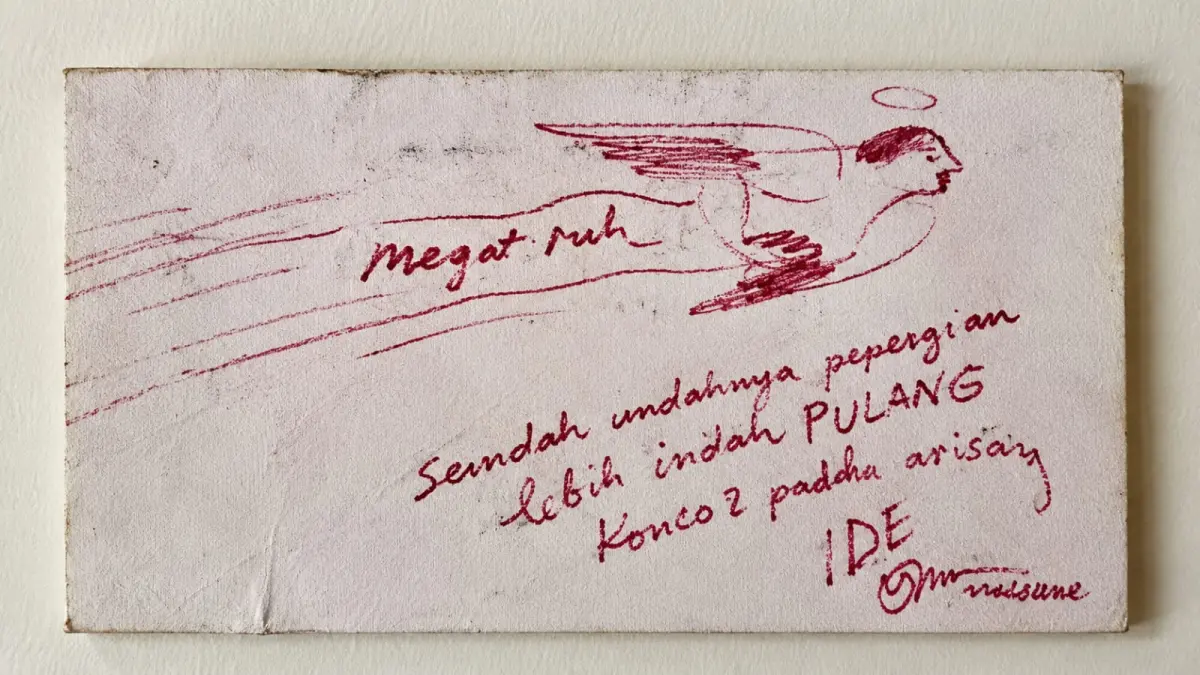 Megat ruh
Seindah undahnya pepergian
lebih indah PULANG
Konco2 paddha arisan
IDE